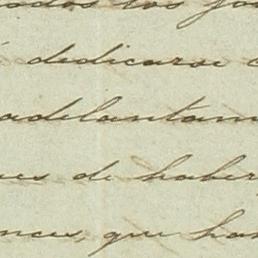 todos los
á dedicarse
adelantam
ues de haber
onces, que han